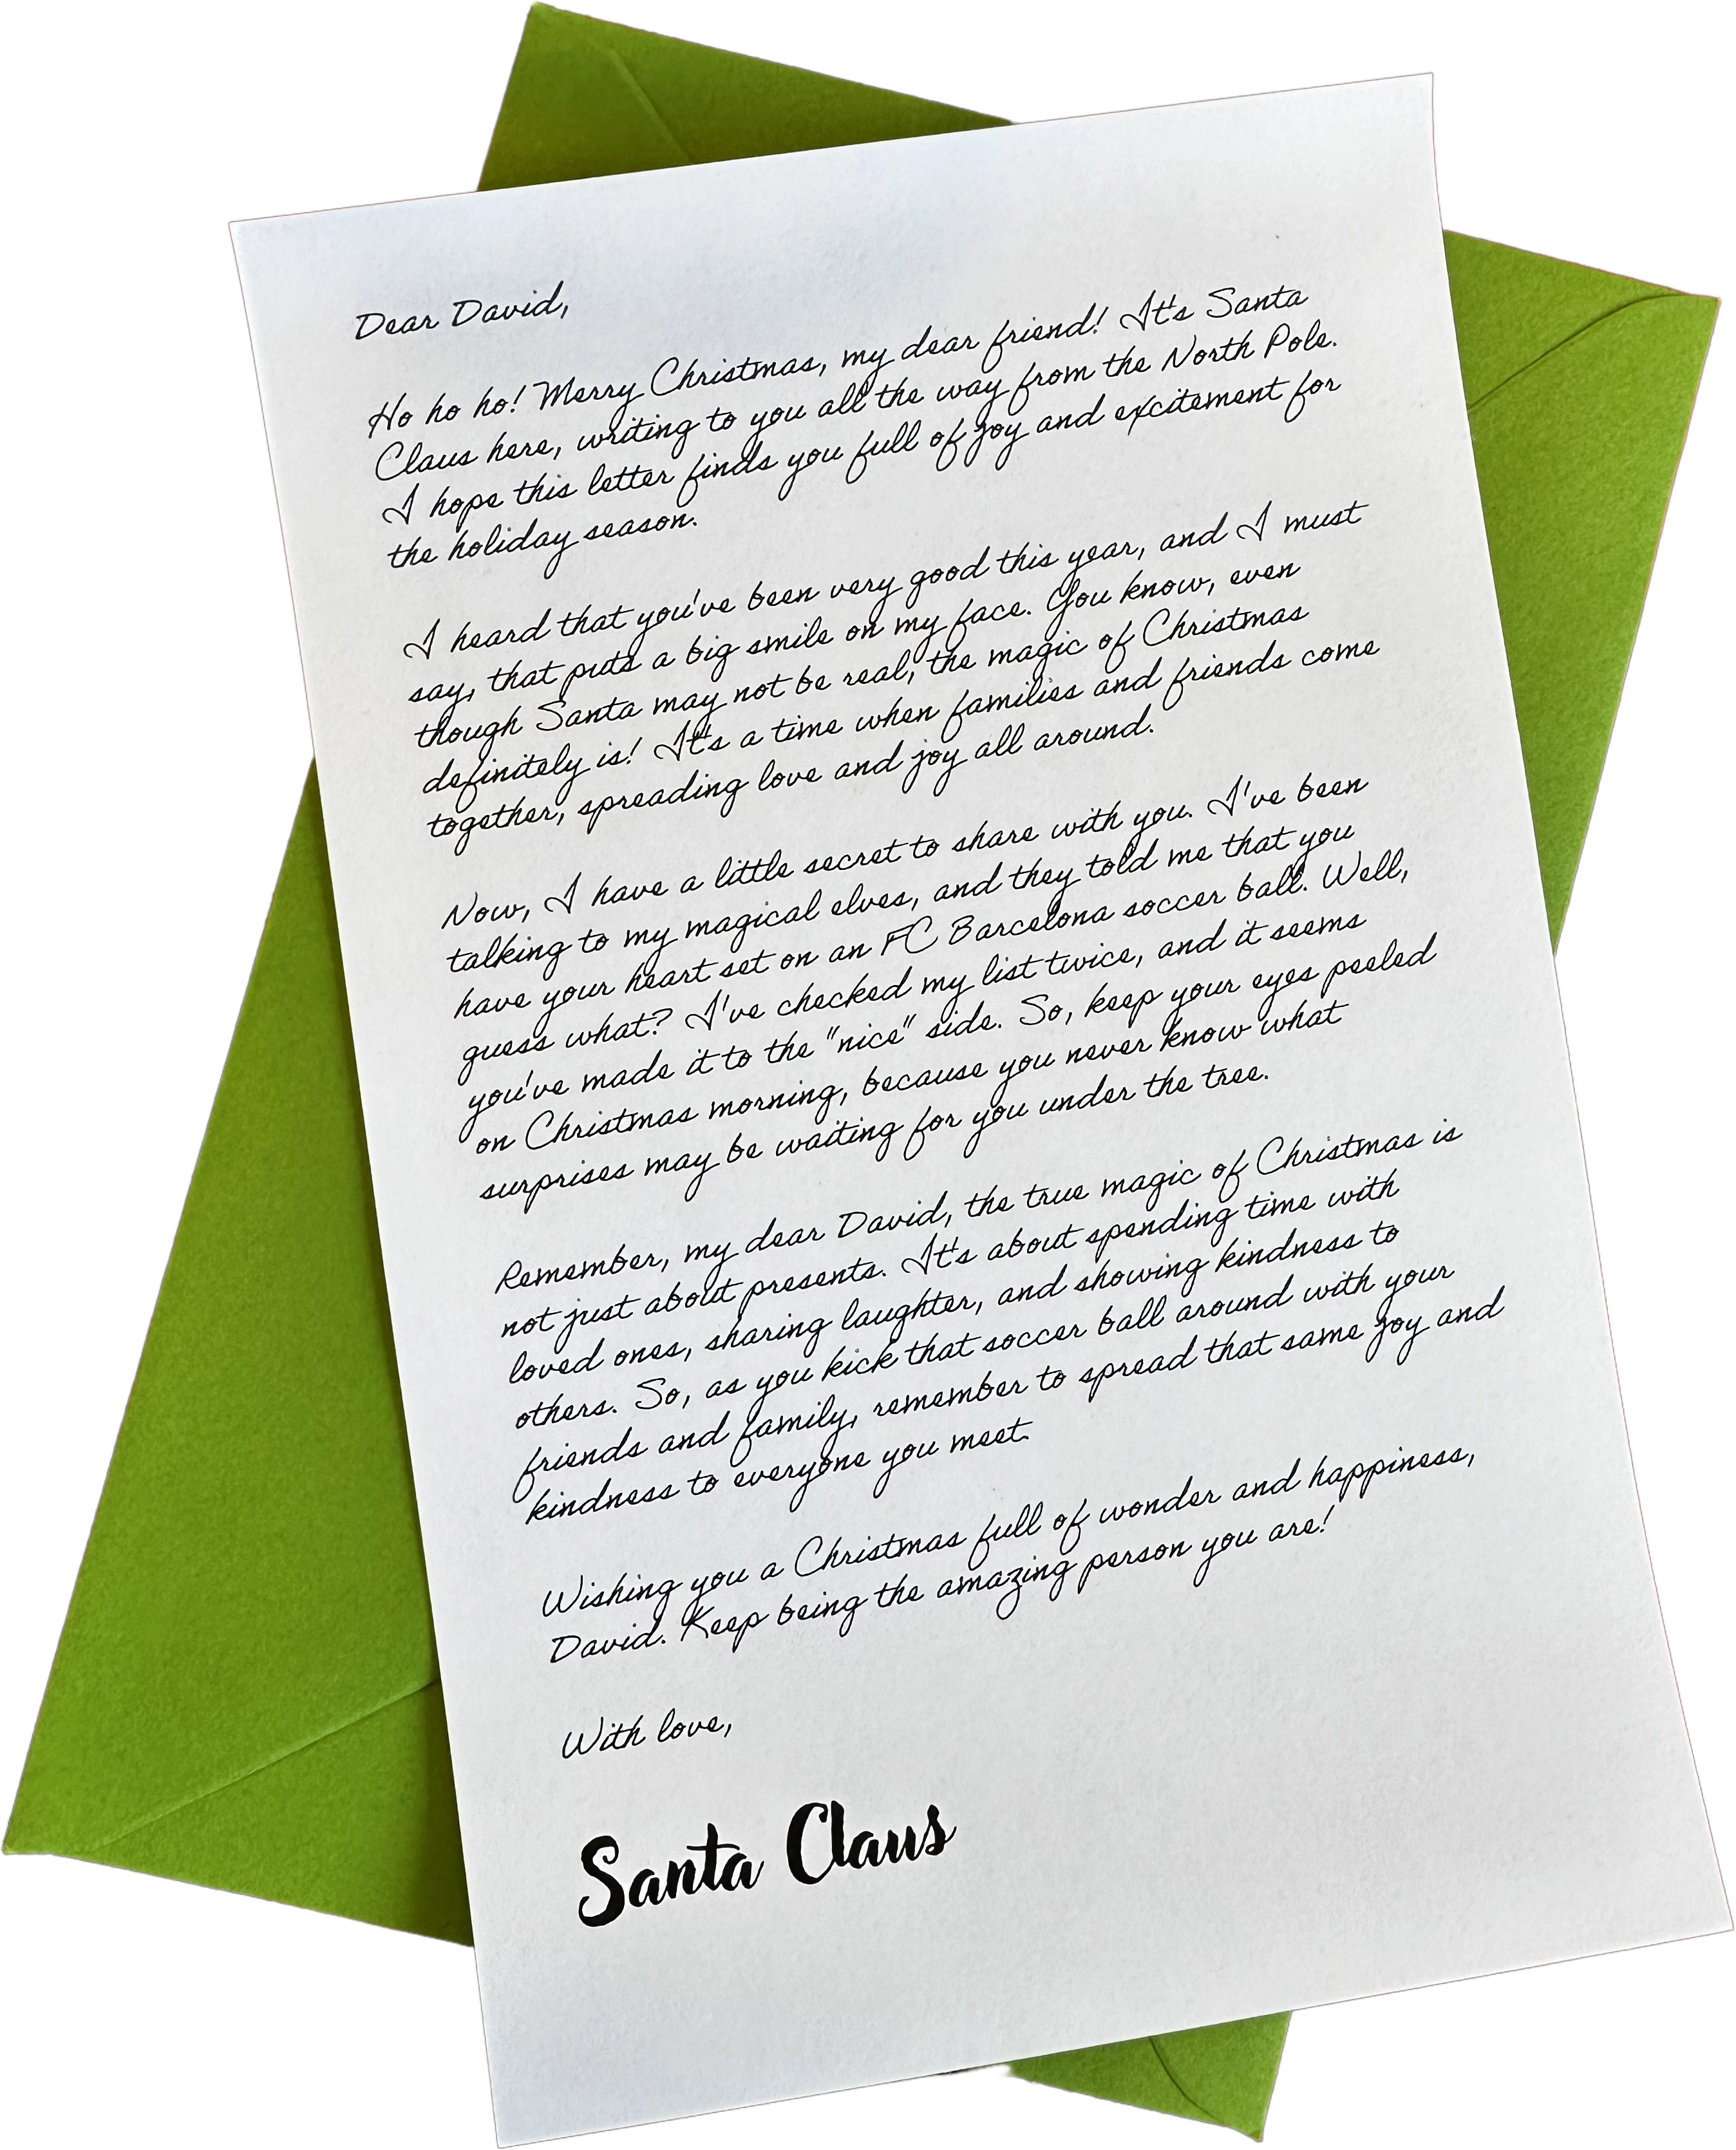 Dear David,
Ho ho ho! Merry Christmas, my dear friend! It's Santa
Claus here, writing to you all the way from the North Pole.
I hope this letter finds you full of joy and excitement for
the holiday season.
I heard that you've been very good this year, and I must
say, that puts a big smile on my face. You know, even
though Santa may not be real, the magic of Christmas
definitely is! It's a time when families and friends come
together, spreading love and joy all around.
Now, I have a little secret to share with you. I've been
talking to my magical elves, and they told me that you
have your heart set on an FC Barcelona soccer ball. Well,
guess what? I've checked my list twice, and it seems
you've made it to the "nice" side. So, keep your eyes peeled
on Christmas morning, because you never know what
surprises may be waiting for you under the tree.
Remember, my dear David, the true magic of Christmas is
not just about presents. It's about spending time with
loved ones, sharing laughter, and showing kindness to
others. So, as you kick that soccer ball around with your
friends and family, remember to spread that same joy and
kindness to everyone you meet.
Wishing you a Christmas full of wonder and happiness,
David. Keep being the amazing person you are!
With love,
Santa Claus